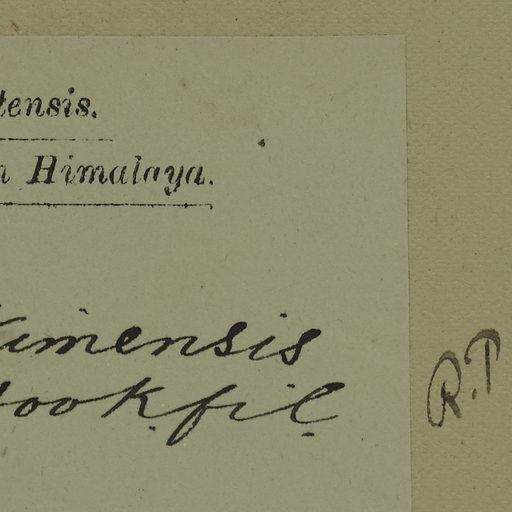 tensis.
n Himalaya.
kimensis
Hook.fil.
R.P